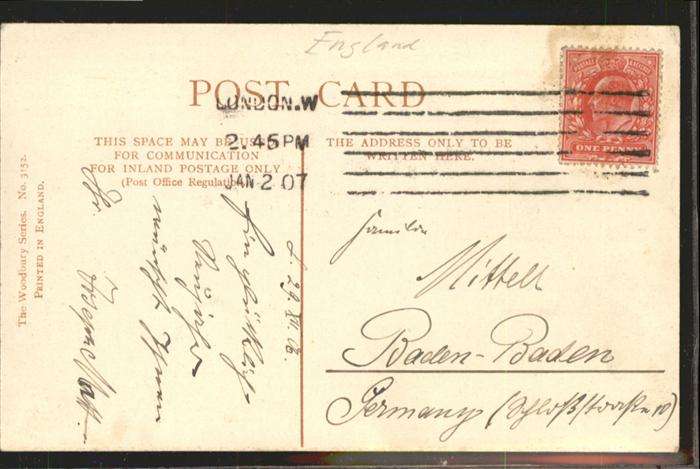 England
POST CARD
LONDON.W
2.45PM
JAN 2 07
ONE PENNY
THIS SPACE MAY BE USED
FOR COMMUNICATION
FOR INLAND POSTAGE ONLY
(Post Office Regulation)
THE ADDRESS ONLY TO BE
WRITTEN HERE.
The Woodbury Series. No. 3152.
PRINTED IN ENGLAND.
Ein glückliches
Neujahr
wünscht Ihnen
Ihr
Familie
Mittell
Baden-Baden
Germany (Schloßstraße 10)